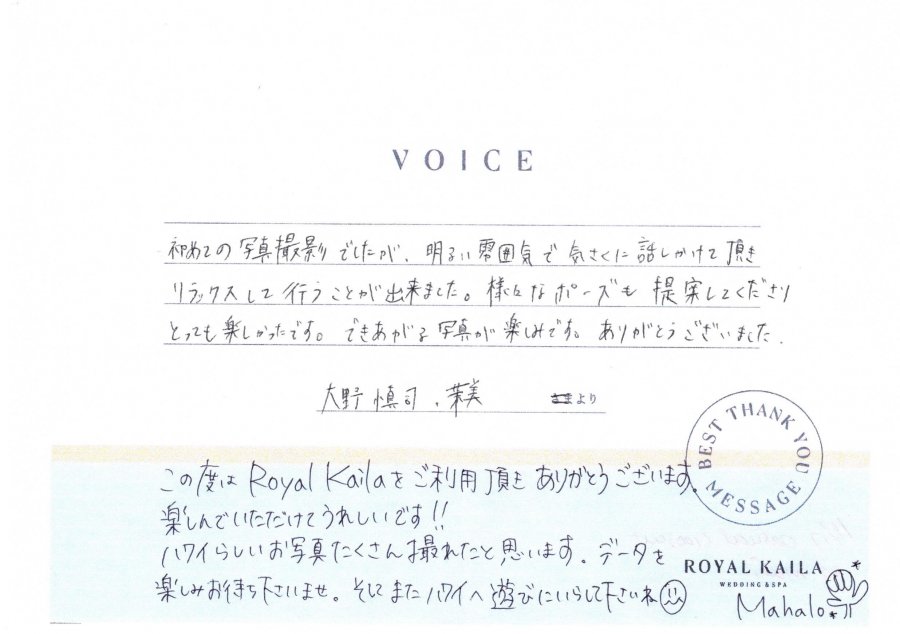 VOICE
初めての写真撮影でしたが、明るい雰囲気で気さくに話しかけて頂き
リラックスして行うことが出来ました。様々なポーズも提案してくださり
とっても楽しかったです。できあがる写真が楽しみです。ありがとうございました.
大野 慎司・葉美 さま より
BEST THANK YOU MESSAGE
この度は Royal Kailaをご利用頂き ありがとうございます.
楽しんでいただけてうれしいです!!
ハワイらしいお写真たくさん撮れたと思います. データを
楽しみお待ち下さいませ. そして また ハワイへ遊びにいらして下さいね
ROYAL KAILA
WEDDING & SPA
Mahalo